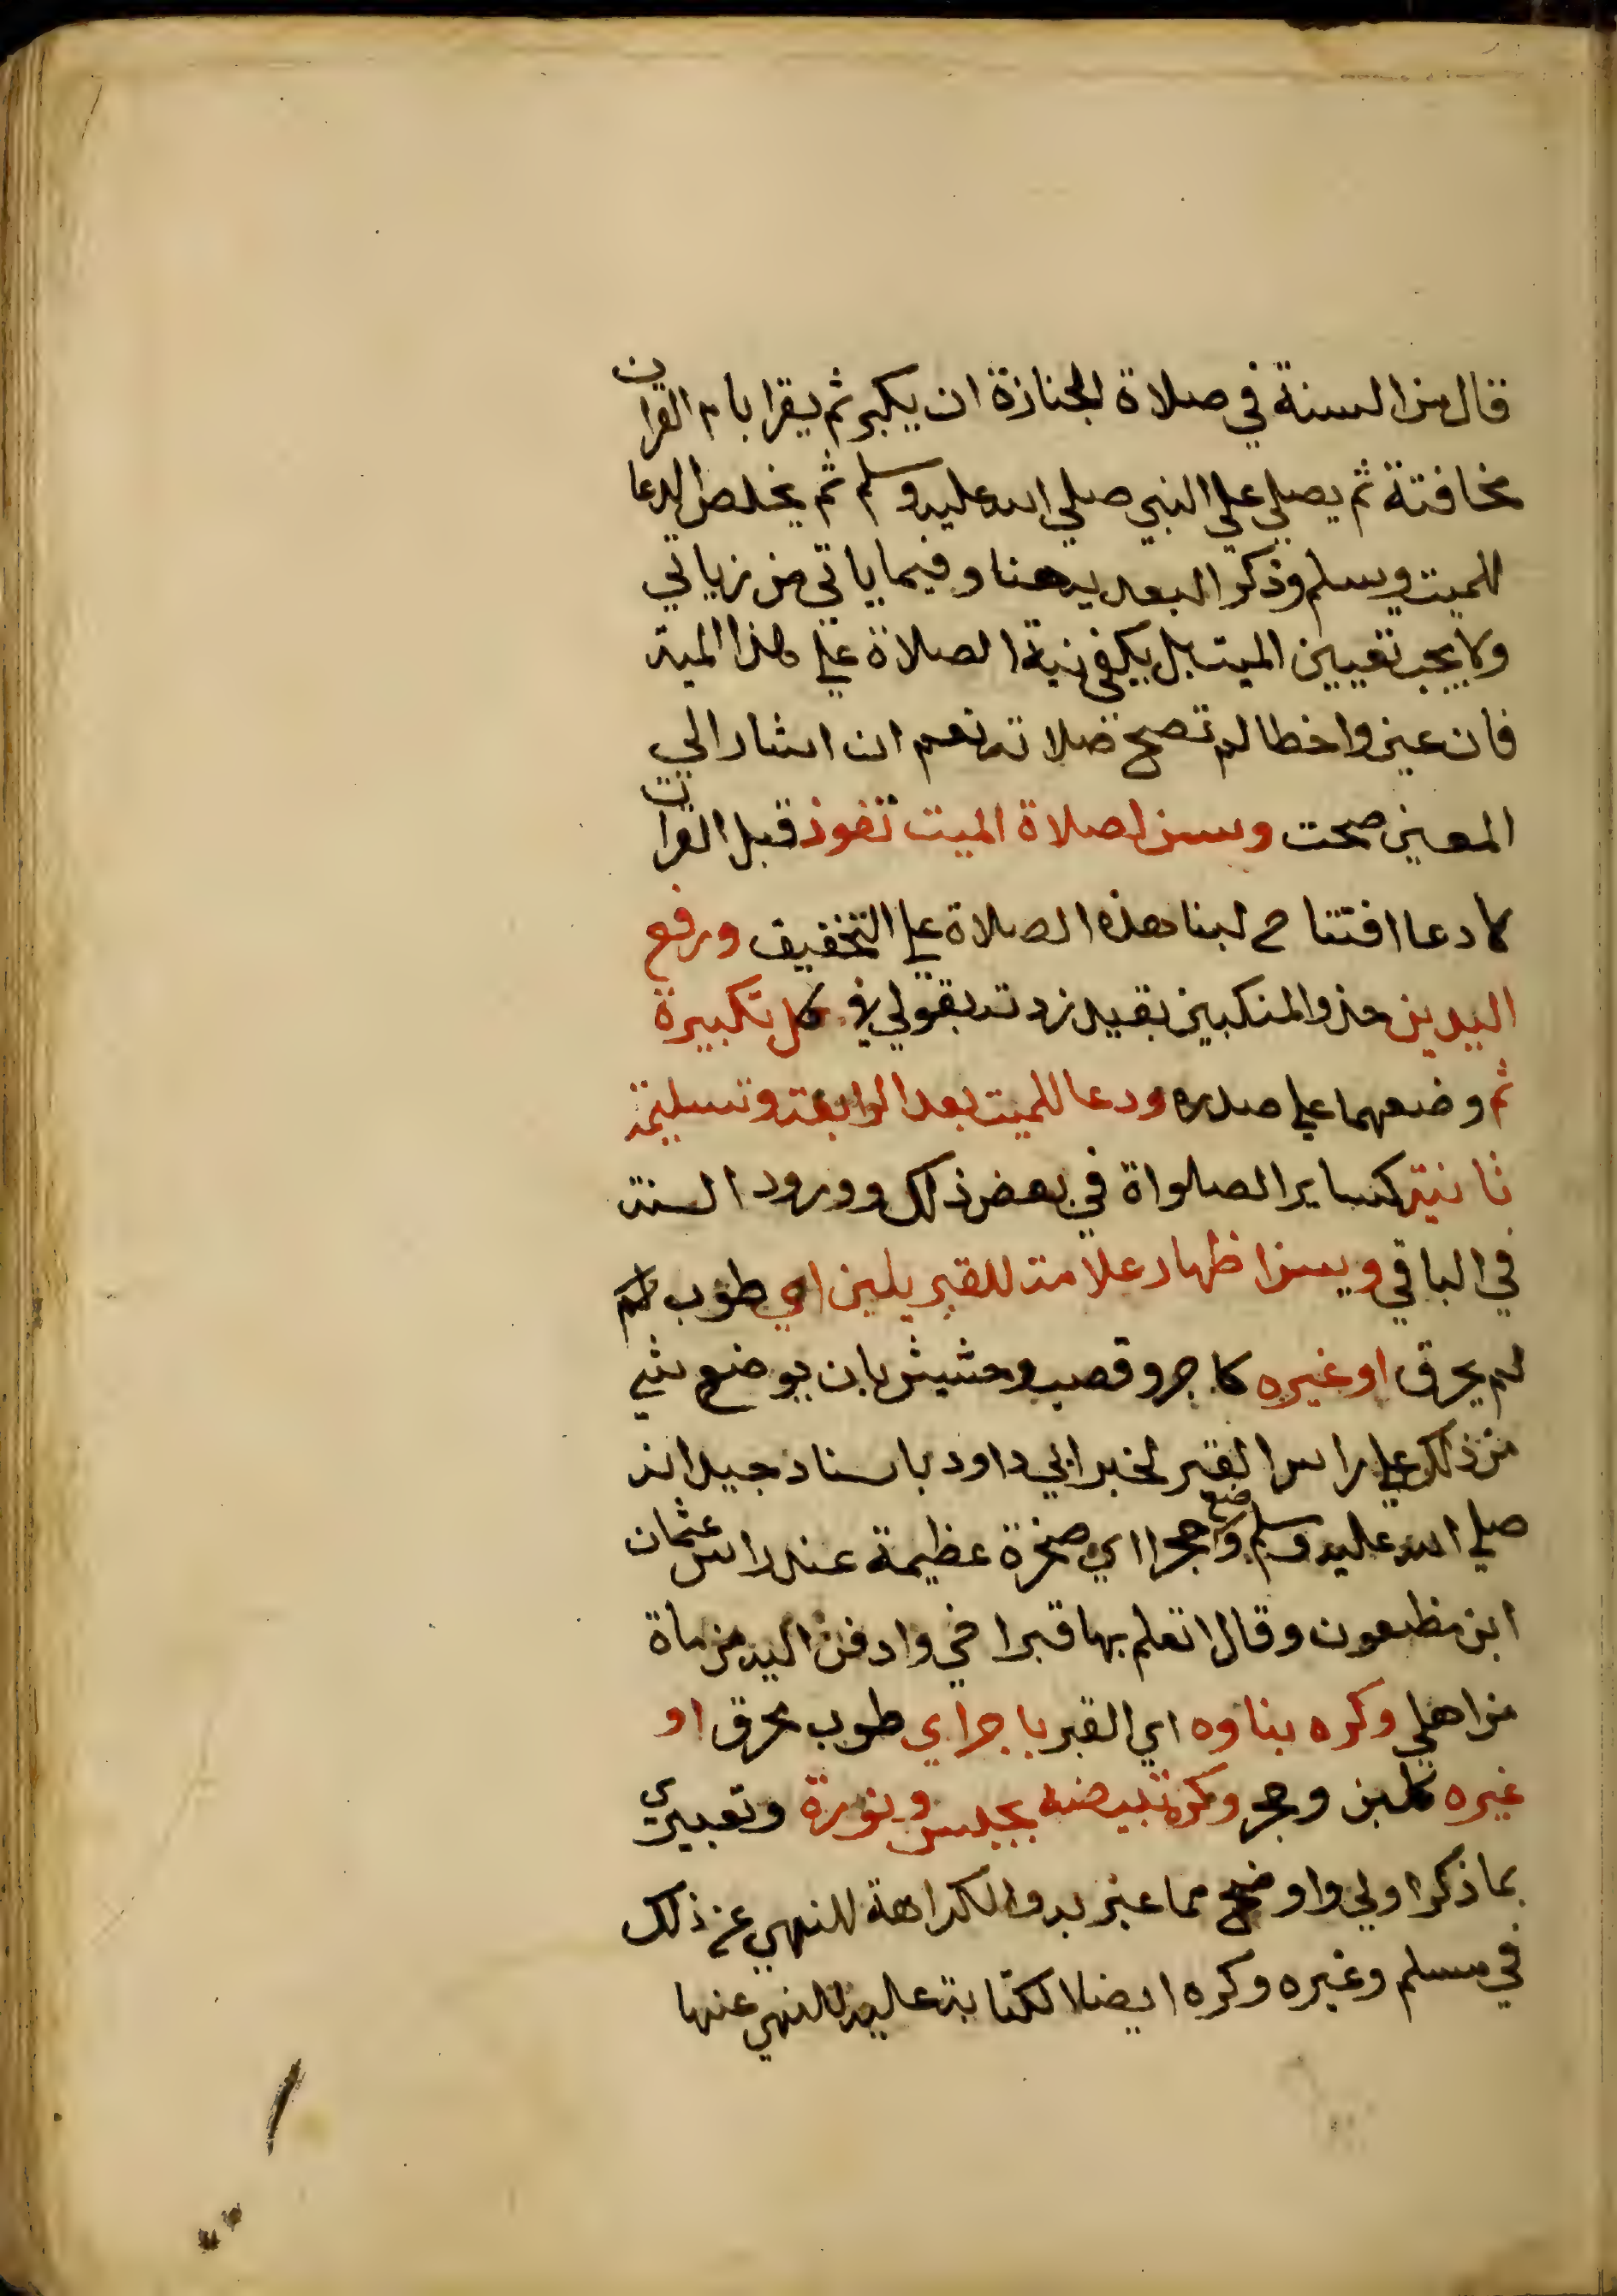 قال من السنة في صلاة الجنازة ان يكبر ثم يقرا بام القران
مخافتة ثم يصلي علي النبي صلي الله عليه وسلم ثم يخلص الدعا
للميت ويسلم وذكر البعدية هنا وفيما ياتي من زيادتي
ولا يجب تعيين الميت بل يكفي نية الصلاة علي هذا الميت
فان عين واخطا لم تصح صلاته نعم ان اشار الي
المعين صحت وسن لصلاة الميت تعوذ قبل القراة
لا دعا افتتاح لبنا هذه الصلاة علي التخفيف ورفع
اليدين حذو المنكبين بقيد زدته بقولي في كل تكبيرة
ثم وضعهما علي صدره ودعا للميت بعد الرابعة وتسليمة
ثانية كساير الصلواة في بعض ذلك وورود السنة
في الباقي ويسن اظهار علامة للقبر بلبن اي طوب
لم يحرق او غيره كاجر وقصب وحشيش بان يوضع شي
من ذلك علي راس القبر لخبر ابي داود باسناد جيد انه
صلي الله عليه وسلم وضع حجرا اي صخرة عظيمة عند راس عثمان
ابن مظعون وقال اتعلم بها قبر اخي وادفن اليه من ماة
من اهلي وكره بناوه اي القبر باجر اي طوب محرق او
غيره كلبن وحجر وكره تبيضه بجبس ونورة وتعبيري
بما ذكر اولي واوضح مما عبر به والكراهة للنهي عن ذلك
في مسلم وغيره وكره ايضا الكتابة عليه للنهي عنها